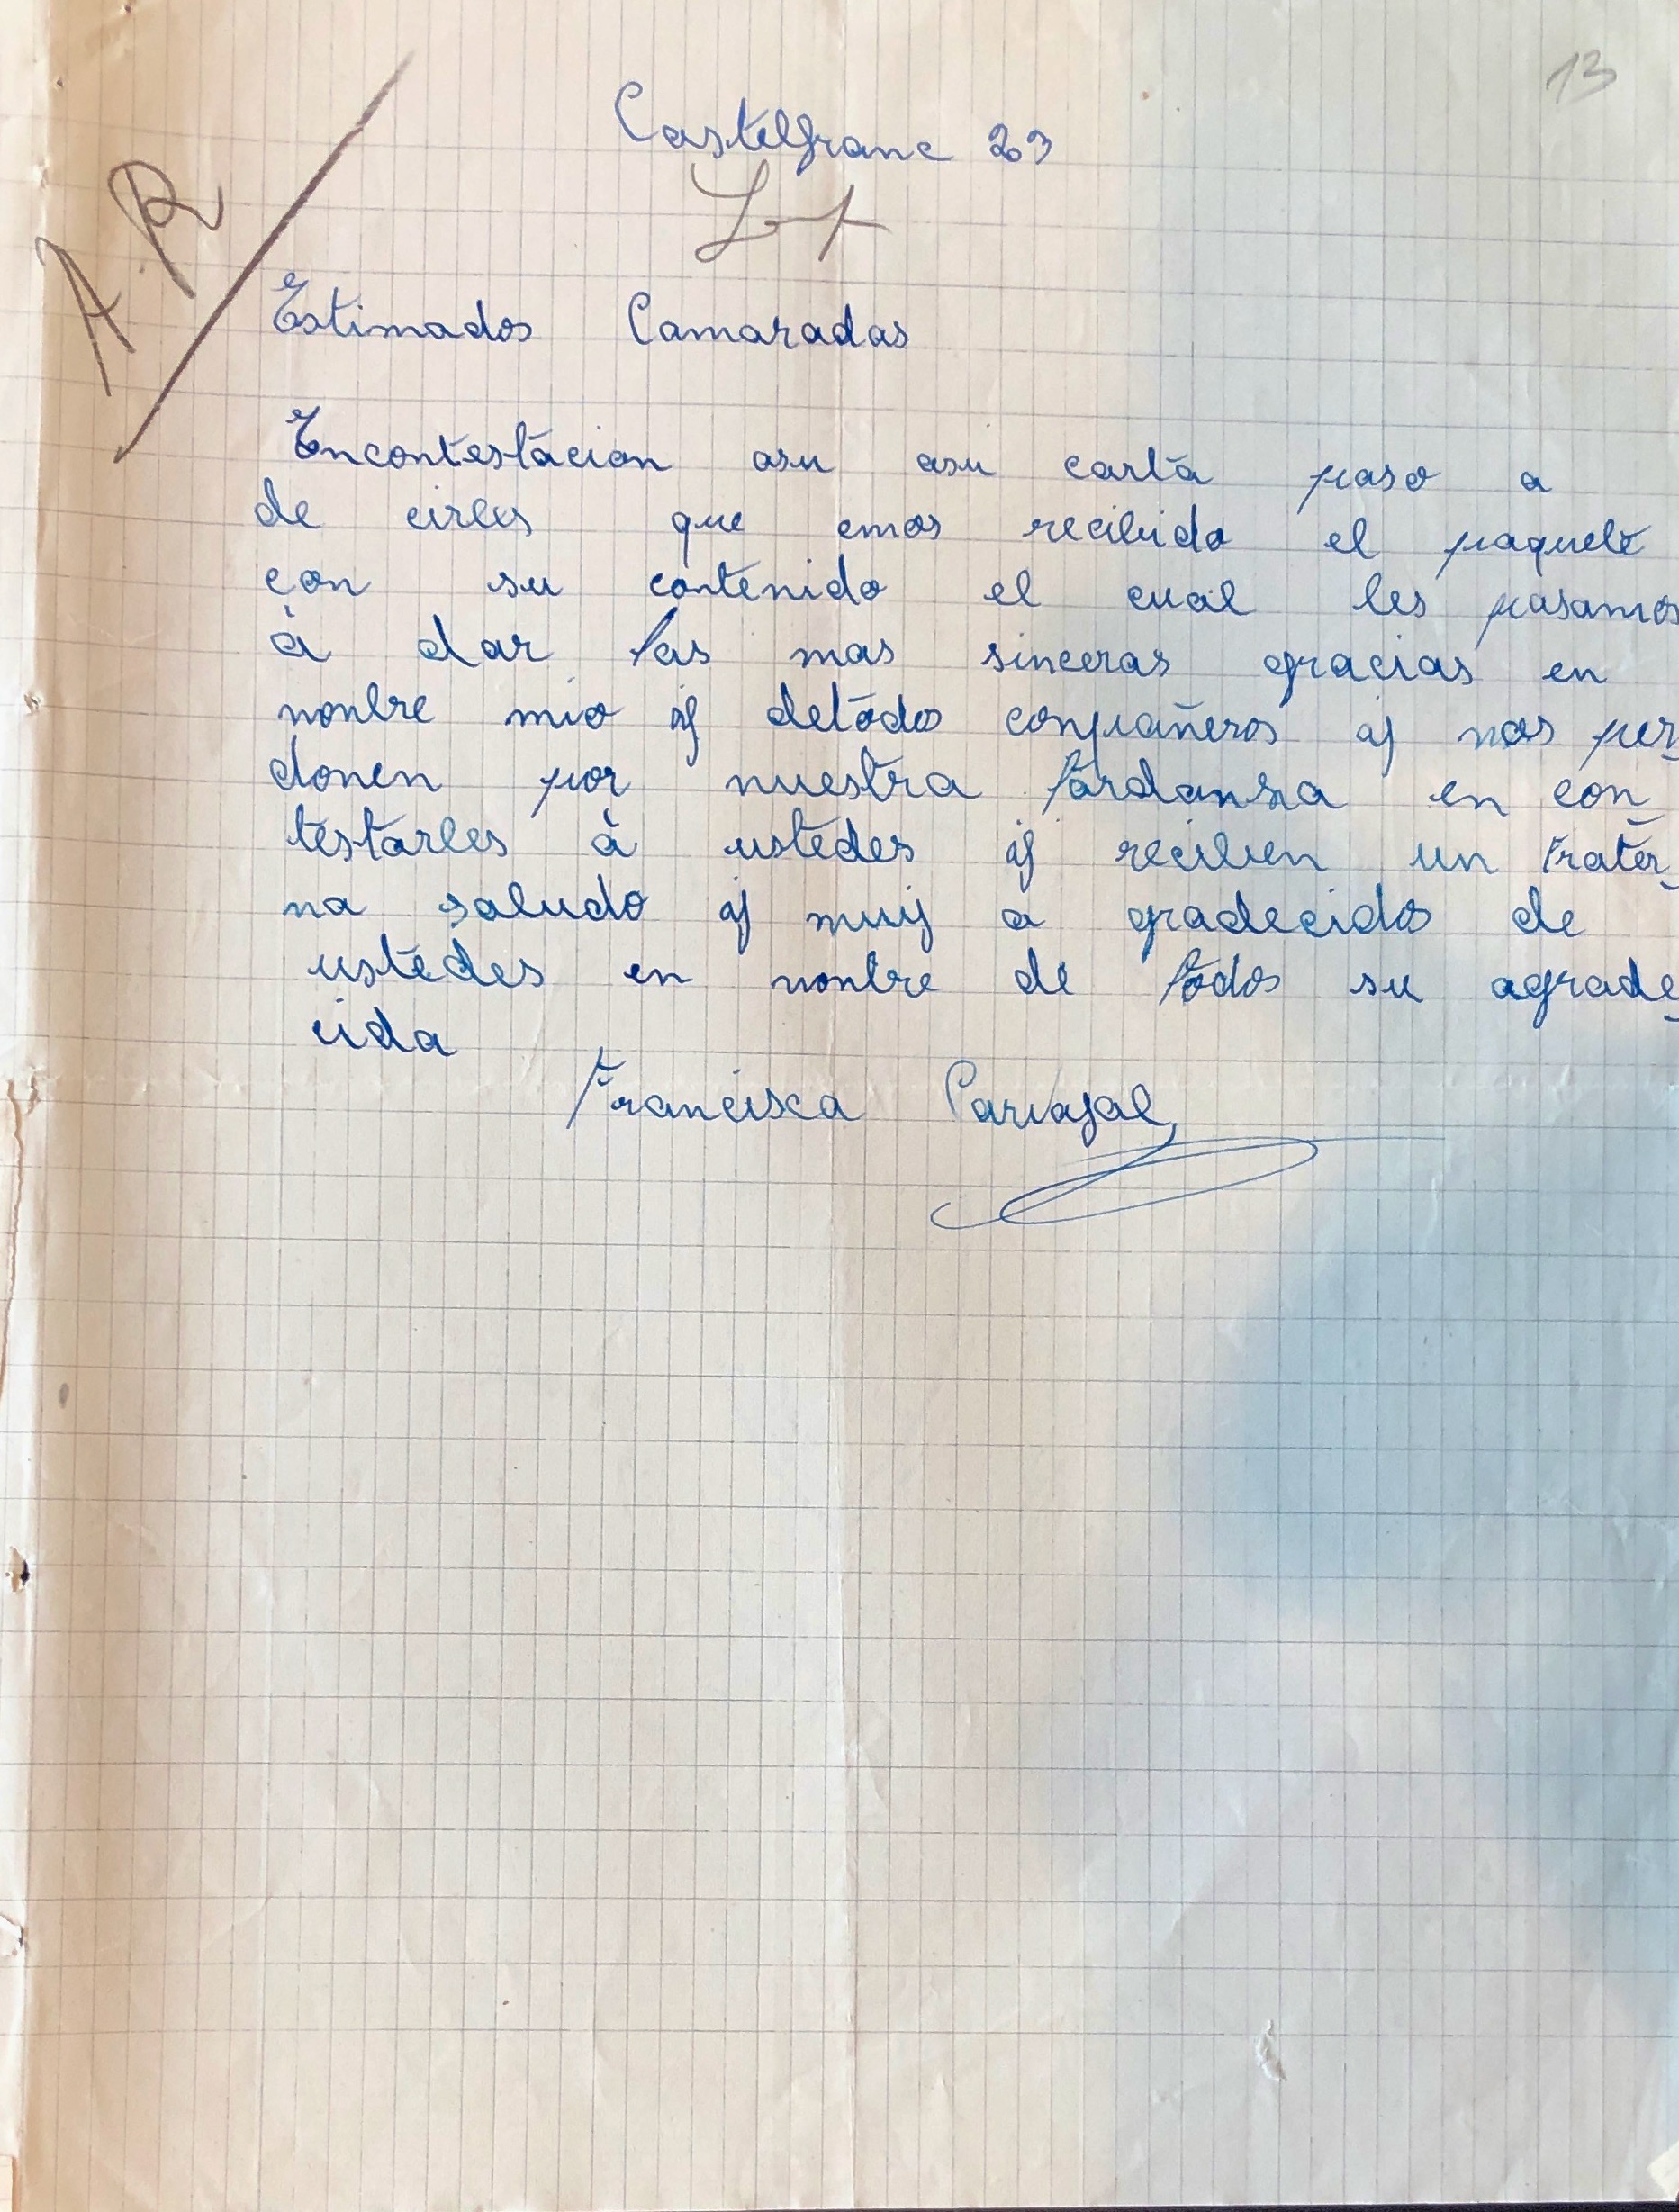 13
Castelfranc 23
Lot
A.R
Estimados Camaradas
Encontestacion asu asu carta paso a
de cirles que emos recibido el paquete
con su contenido el cual les pasamos
à dar las mas sinceras gracias en
nonbre mio y detodos conpañeros y nos per_
donen por nuestra tardansa en con_
testarles à ustedes y reciben un frater_
na saludo y muy a gradecidos de
ustedes en nonbre de todos su agrade_
cida
Francisca Carvajal